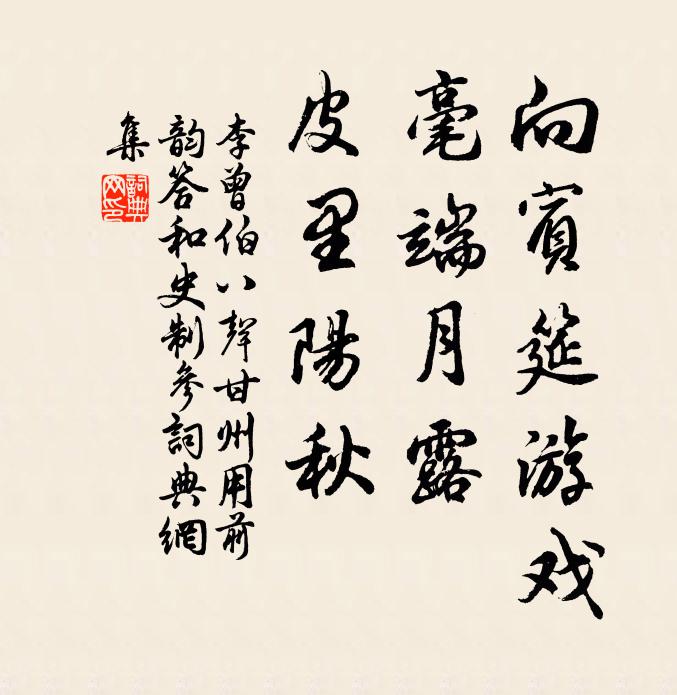 向賓筵游戏
毫端月露
皮里陽秋
李曾伯八聲甘州用前
韵答和史制參詞典網
集
詞典
网印